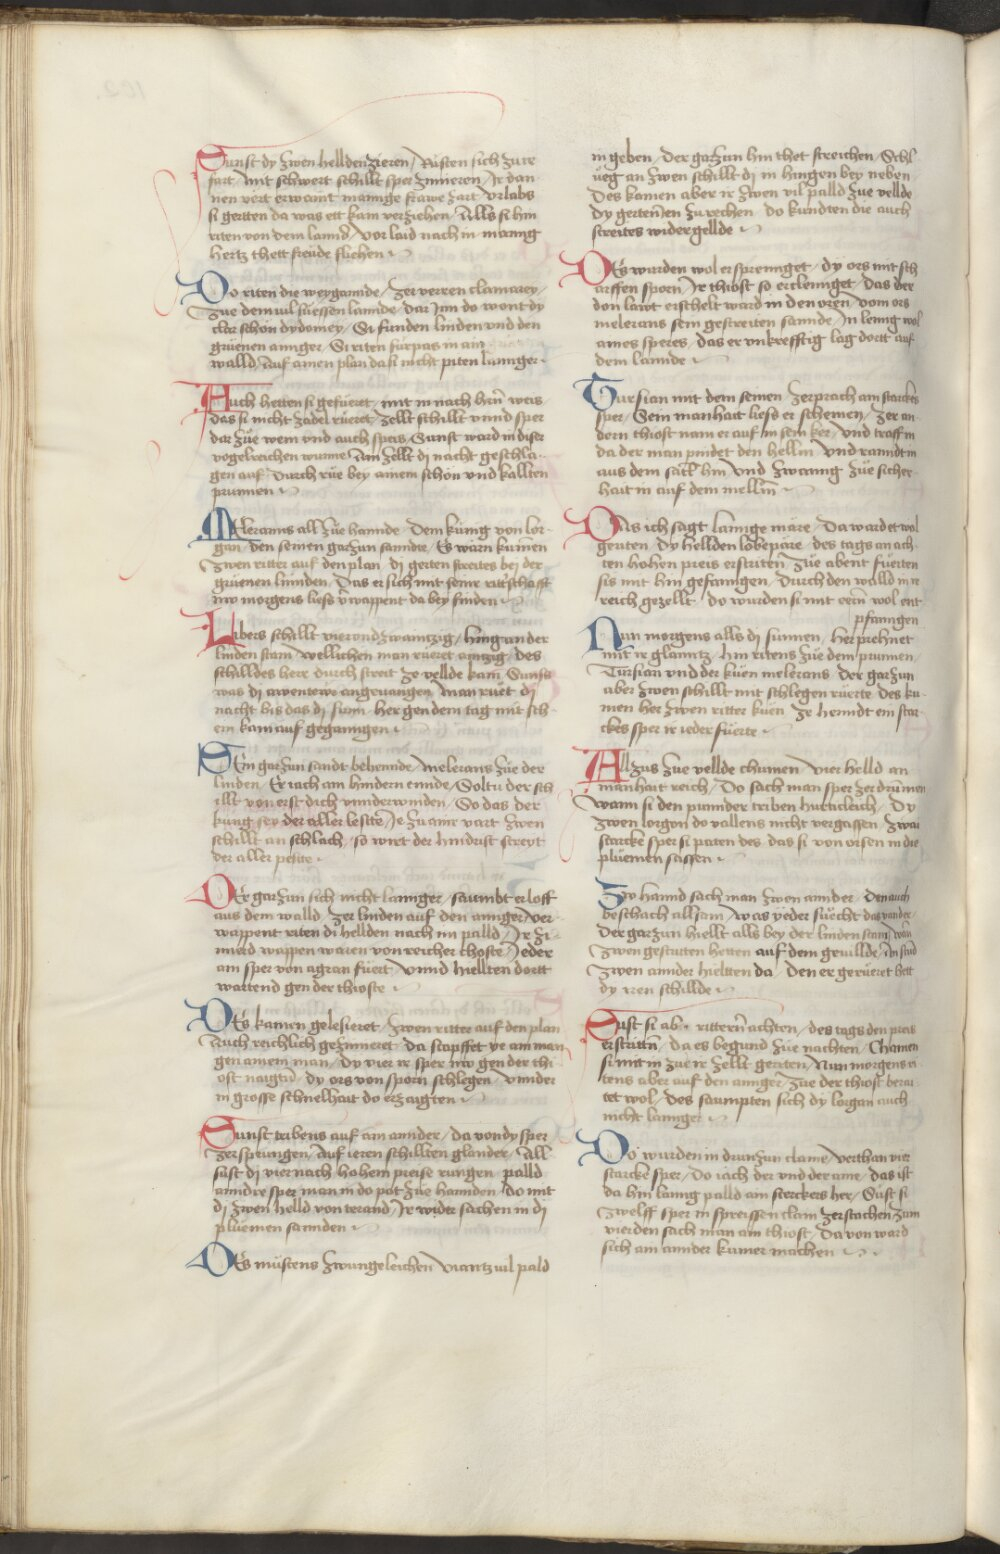 Sunst dy zwen hellden zieren / Rusten sich zu re
fart / Mit schwert schillt sper zimieren / Ir dan
nen vert erwaint mannige frawe zart / Vrlabs
si gertten da was ett kain verziehen / Alls si hin
riten von dem lannd / Vor laid nach in mannig
hertz thett freude fliehen
Do riten die weygannde / Zer verren clamarey /
Zue dem vil suessen lannde / Dar Inn do wont dy
clar schon dydomey / Si funden linden vnd den
gruenen annger / Si riten furpas in ain
walld / Auf ainen plan da si nicht piten lannger
Auch hetten si gefueret / mit in nach hirn weis /
das si nicht zadel rueret / Zellt schillt vnnd sper
dar zue wein vnd auch speis / Sunst ward in diser
vogelreichen wunne / Ain zellt di nacht geschla-
gen auf / Durch rue bey ainem schon vnd kallten
prunnen
Meleranns all zue hannde / Dem kunig von lor-
gan / den seinen garzun sannde / Es warn kumen
Zwen ritter auf den plan / di gerten streites bey der
gruenen linnden / Das er sich mit seine ritterschafft
nw morgens liess vwappent da bey finden
Libers schillt vierondzwaintzig / hing an der
linden stam / wellichen man rueret ainzig / des
schilldes herr durch streit ze vellde kam / Sunst
was di awentewr angeuangen / Man ruet di
nacht bis das di sunn / her gen dem tag mit sch-
ein kam auf geganngen
Sein garzun sandt behennde / Melerans zue der
linden / Er iach am hindern ennde / Soltu der sch
illt von erst dich vnnderwinden / So das der
kunig sey der aller lestte / Je zu ainr vart zwen
schillt an schlach / so wirt der hindrist streyt
der aller peste
Der garzun sich nicht lannger / saumbt er loff
aus dem walld / Zer linden auf den annger / ver-
wappent riten di hellden nach im palld / Ir zi-
mierd wappen waren von reicher choste / Jeder
ain sper von agran fuert / Vnnd hiellten dortt
wartend gen der thioste
Des kamen geleisieret / zwen ritter auf den plan
Auch reichlich gezimieret / da stapffet ye ain man
gen ainem man / Dy vier ir sper nw gen der thi
ost naigtn / dy ors von sporn schlegen / vnnder
in grosse schnelhait do erzaigten
Sunst tribens auf ain annder / da von dy sper
Zersprungen / Auf ieren schillten glander / All
sust di vier nach hohem preise rungen / palld
anndre sper man in do pot zue hannden / Do mit
di zwen helld von terand / Ir wider sachen in di
pluemen sannden
Des mustens zwungeleichen / viantz vil pald
in geben / Der garzun hin thet streichen / Schl
ueg an zwen schillt di in hingen bey neben
Des kamen aber ir zwen vil palld zue vellde
Dy gerten Ien zu rechen / do kundten die auch
streites widergellde
Des wurden wol ersprennget / dy ors mit sch
arffen sporn / Ir thiost so erclennget / Das der
don lawt erschelt ward in den oren / vom ors
melerans sein gestreiten sannde / In lenng wol
aines speres / das er vnkrefftig lag dortt auf
dem lannde
Tursian mit dem seinen / Zerprach ain starckes
sper / Sein manhait liess er scheinen / Zer an-
dern thiost nam er auf in sein ker / Vnd traff in
da der man pindet den hellm / Vnd ranndt in
aus dem satl hin / Vnd zwanng zue sicher-
hait in auf dem mellm
Als ich sagt lannge mare / Da ward et wol
geriten / Dy hellden lobepare / des tags an ach-
ten hohen preis erstriten / Zue abent fuerten
sis mit hin gefanngen / Durch den walld in ir
reich gezellt / do wurden si mit eern wol ent
pfanngen
Nun morgens alls di sunnen / her prehnet
mit ir glanntz / hin ritens zue dem prunnen /
Tursian vnd der kuen melerans / der garzun
aber zwen schillt mit schlegen ruerte / Des ku-
men her zwen ritter kuen / Ze henndt ein star
ckes sper ir ieder fuerte
Allzus zue vellde chumen / Vier helld an
manhait reich / Do sach man sper zer drumen
Wann si den punnder triben hurticleich / Dy
zwen lorgan do vallens nicht vergassen / zwai
starcke sper si paten des / das si von orsen in die
pluemen sassen
Zw hannd sach man zwen annder / Den auch
beschach allsam / Was yeder suecht das vander /
Der garzun hiellt alls bey der linden stam / wan
zwen gestriten hetten auf dem gevillde / In stund
zwen annder hieltten da / Den er gerueret hett
dy iren schillde
Sust si ab ritterrn achten / des tags den preis
erstritn / da es begund zue nachten / Chamen
si mit in zue ir zellt geriten / Nun morgens ri-
tens aber auf den annger / Zue der thiost berai-
tet wol / Des saumpten sich dy lorgan auch
nicht lannger
Do wurden in drunzun claine / Verthan vier
starcke sper / Do iach der vnd der aine / das ist
da hin lanng palld ain sterckers her / Sust si
zwelff sper in spreissen clain zerstachen / Zum
vierden sach man ain thiost / Da von ward
sich ain annder kumer machen